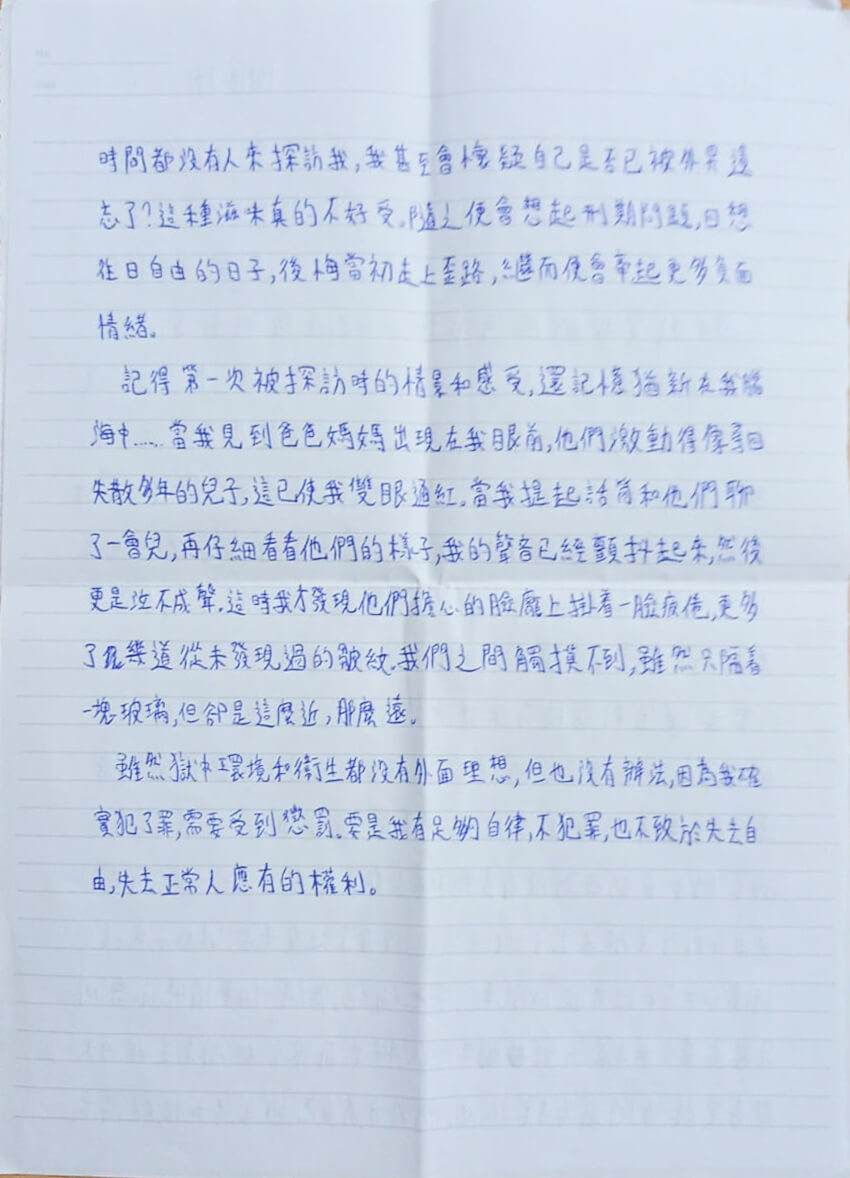 時間都没有人來探訪我,我甚至會懷疑自己是否已被外界遺
忘了?這種滋味真的不好受。隨之便會想起刑期問題,回想
往日自由的日子,後悔當初走上歪路,繼而便會牽起更多負面
情緒。
記得第一次被探訪時的情景和感受,還記憶猶新在我腦
海中……當我見到爸爸媽媽出現在我眼前,他們激動得像尋回
失散多年的兒子,這已使我雙眼通紅。當我提起話筒和他們聊
了一會兒,再仔細看看他們的樣子,我的聲音已經顫抖起來,然後
更是泣不成聲。這時我才發現他們擔心的臉龐上掛着一臉疲倦,更多
了幾道從未發現過的皺紋。我們之間觸摸不到,雖然只隔着
一塊玻璃,但卻是這麼近,那麼遠。
雖然獄中環境和衛生都没有外面理想,但也没有辦法,因為我確
實犯了罪,需要受到懲罰。要是我有足夠自律,不犯罪,也不致於失去自
由,失去正常人應有的權利。